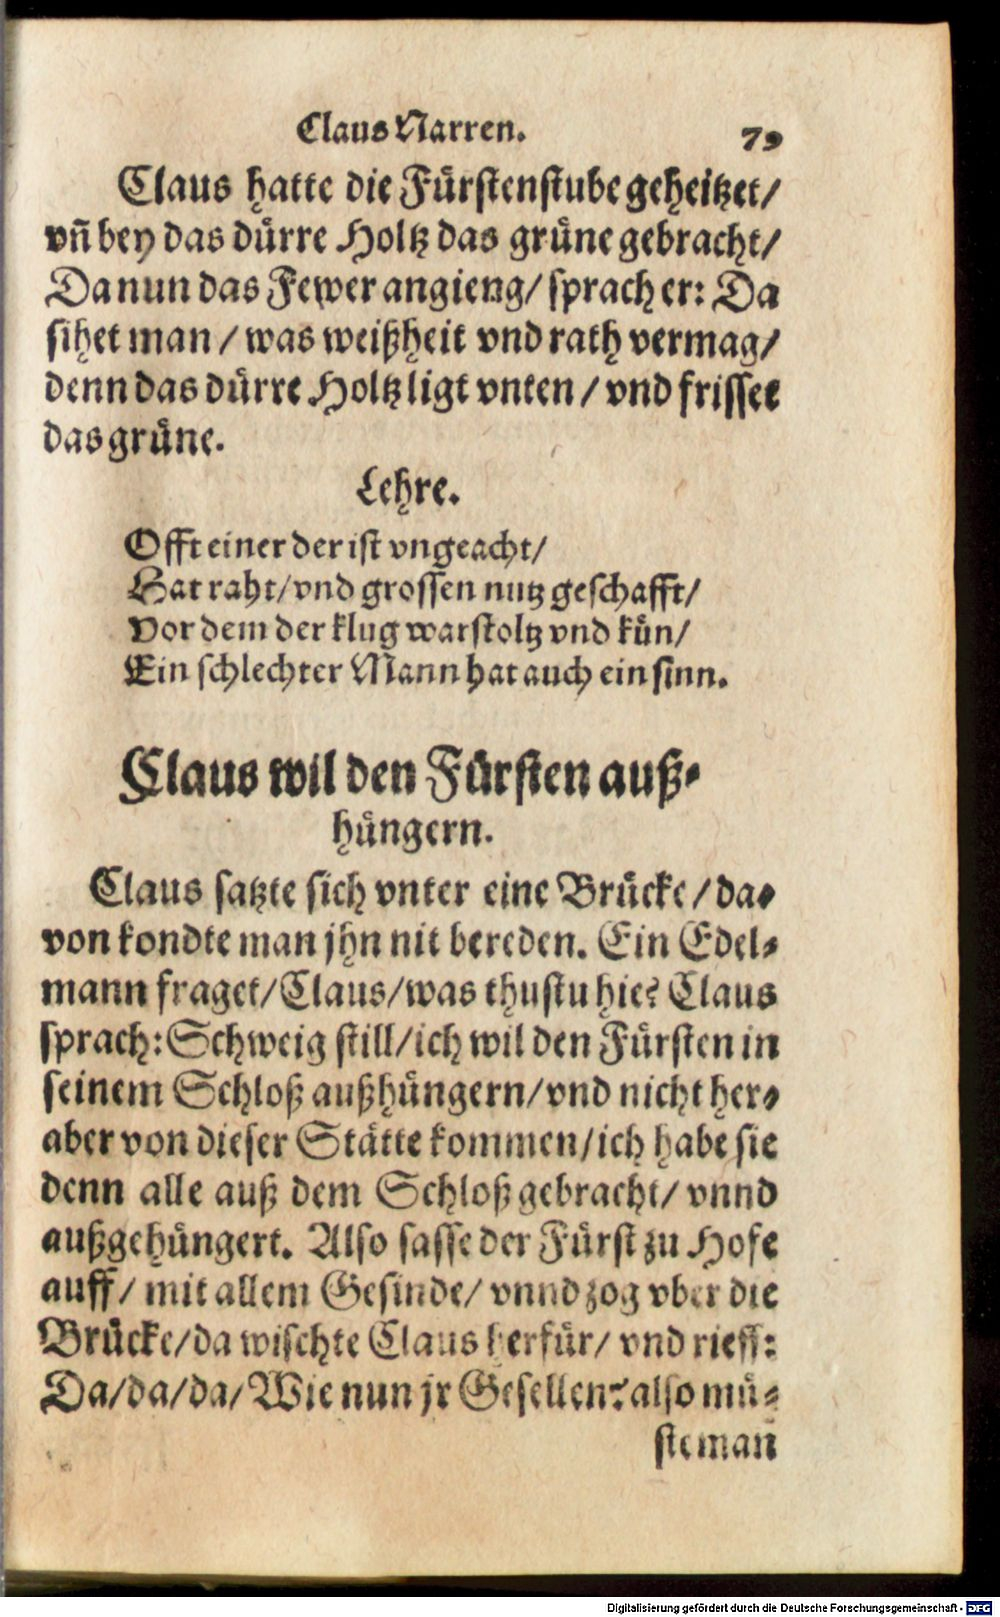 Claus Narren. 79
Claus hatte die Fürstenstube geheitzet/
vñ bey das dürre Holtz das grüne gebracht/
Da nun das Fewer angieng/ sprach er: Da
sihet man / was weißheit vnd rath vermag/
denn das dürre Holtz ligt vnten / vnd frisset
das grüne.
Lehre.
Offt einer der ist vngeacht/
Hat raht/ vnd grossen nutz geschafft/
Vor dem der klug war stoltz vnd kün/
Ein schlechter Mann hat auch ein sinn.
Claus wil den Fürsten auß-
hüngern.
Claus satzte sich vnter eine Brücke / da-
von kondte man jhn nit bereden. Ein Edel-
mann fraget/ Claus/ was thustu hie? Claus
sprach: Schweig still/ ich wil den Fürsten in
seinem Schloß außhüngern/ vnd nicht her-
aber von dieser Stätte kommen/ ich habe sie
denn alle auß dem Schloß gebracht/ vnnd
außgehüngert. Also sasse der Fürst zu Hofe
auff/ mit allem Gesinde/ vnnd zog vber die
Brücke/ da wischte Claus herfür/ vnd rieff:
Da/ da/ da/ Wie nun jr Gesellen? also mü-
ste mañ
Digitalisierung gefördert durch die Deutsche Forschungsgemeinschaft - DFG